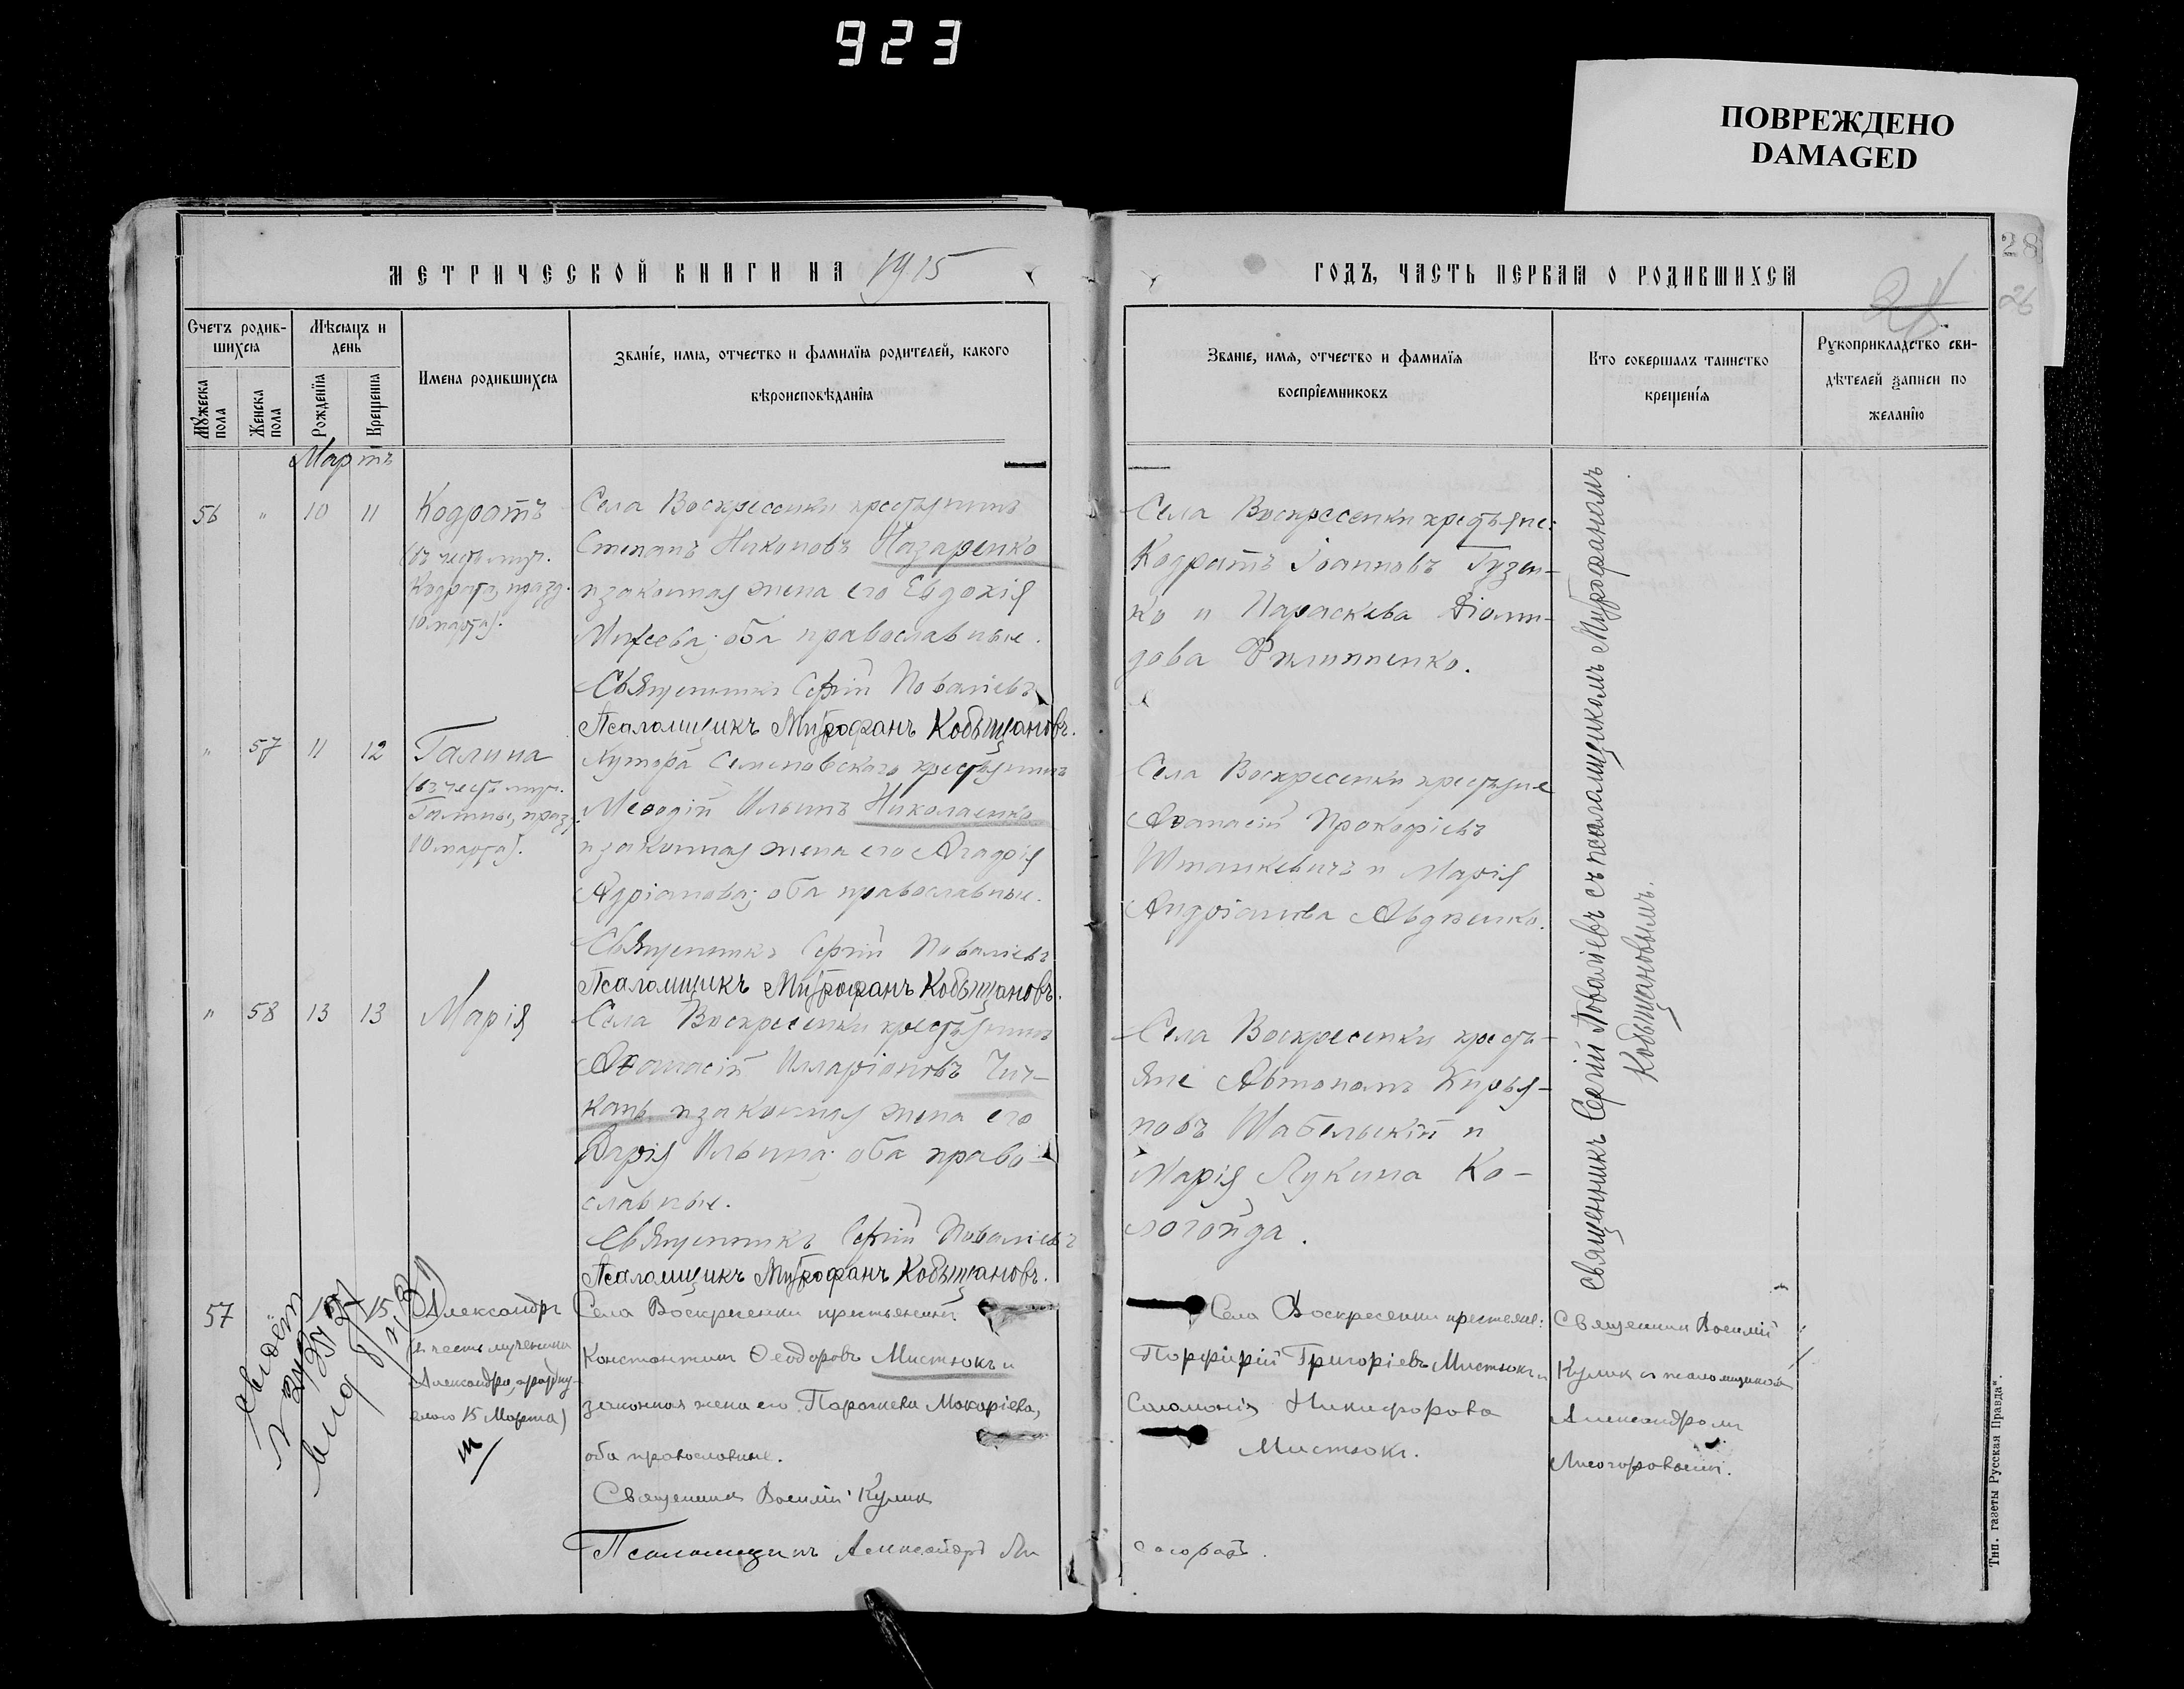 923
ПОВРЕЖДЕНО
DAMAGED
28
26
МЕТРИЧЕСКОЙ КНИГИ НА 1915
ГОДЪ, ЧАСТЬ ПЕРВАЯ О РОДИВШИХСЯ
Счетъ родив-
шихся
Мѣсяцъ и
день
Мужеска
пола
Женска
пола
Рожденїя
Крещенїя
Имена родившихся
Званїе, имя, отчество и фамилїя родителей, какого
вѣроисповѣданїя
Званїе, имя, отчество и фамилїя
воспрїемниковъ
Кто совершалъ таинство
крещенїя
Рукоприкладство сви-
дѣтелей записи по
желанїю
Мартъ
56 " 10 11 Кодратъ
(въ честь муч.
Кодрата, празд.
10 марта).
Села Воскресенки крестьянинъ
Степанъ Никоновъ Назаренко
и законная жена его Евдокія
Михеева; оба православные.
Священникъ Сергій Поваліевъ
Псаломщикъ Митрофанъ Кобыщановъ.
Села Воскресенки крестьяне:
Кодратъ Іоанновъ Гузен-
ко и Параскева Діоми-
дова Филиппенко.
" 57 11 12 Галина
(въ честь муч.
Галины, празд.
10 марта).
Хутора Семеновскаго крестьянинъ
Меѳодій Ильинъ Николаенко
и законная жена его Агафія
Адріанова; оба православные.
Священникъ Сергій Поваліевъ
Псаломщикъ Митрофанъ Кобыщановъ.
Села Воскресенки крестьяне
Аѳанасій Прокофіевъ
Штанкевичъ и Марія
Андріанова Авдѣенко.
" 58 13 13 Марія
Села Воскресенки крестьянинъ
Аѳанасій Илларіоновъ Чич-
кань и законная жена его
Дарія Ильина; оба право-
славные.
Священникъ Сергій Поваліевъ
Псаломщикъ Митрофанъ Кобыщановъ.
Села Воскресенки кресть-
яне Автономъ Кирья-
новъ Шабельскій и
Марія Лукина Ко-
логойда.
Священникъ Сергій Поваліевъ съ псаломщикомъ Митрофаномъ
Кобыщановымъ.
57 15 Александръ
(въ честь мученика
Александра, праздну-
емаго 15 Марта)
Села Воскресенки крестьянинъ
Константинъ Ѳеодоровъ Мистюкъ и
законная жена его Параскева Макаріева,
оба православные.
Священникъ Василій Кулик
Псаломщикъ Александръ Ли
согоръ.
Села Воскресенки крестьяне:
Порфирій Григоріевъ Мистюкъ и
Соломонія Никифорова
Мистюкъ.
Священникъ Василій
Кулик съ псаломщикомъ
Александромъ
Лисогоровымъ.
Тип. газеты Русская Правда".